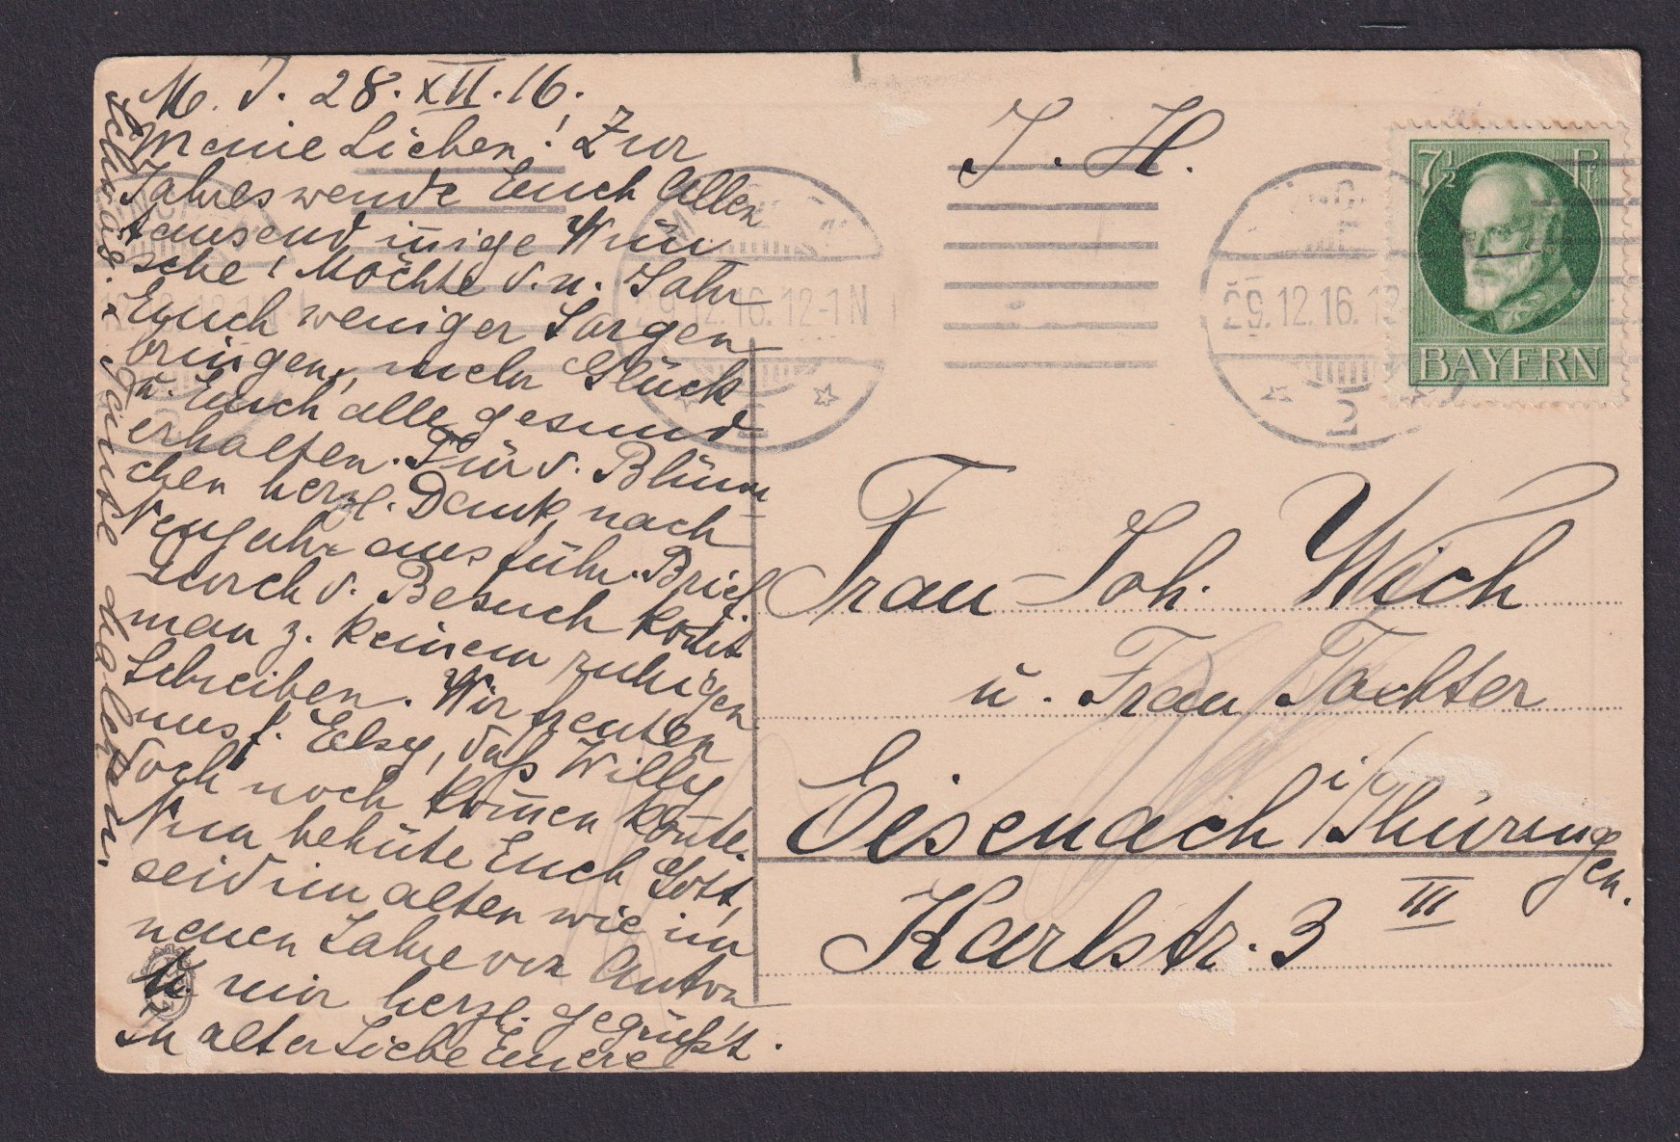 M. J. 28. XII. 16.
Meine Lieben! Zur
Jahreswende Euch Allen
tausend innige Wün
sche! Möchte d. n. Jahr
Euch weniger Sorgen
bringen, mehr Glück
u. Euch alle gesund
erhalten. Für d. Blüm
chen herzl. Dank, nach
Neujahr ausführ. Brief
Durch d. Besuch kom̅t
man z. keinem ruhigen
Schreiben. Wir freuten
uns f. Elsy, daß Willy
doch noch kom̅en kon̅te.
Nun behüte Euch Gott,
seid im alten wie im
neuen Jahre von Anton
u. mir herzl. gegrüßt.
In alter Liebe Euere
J. H.
29.12.16.12-1N
29.12.16.12
2
2
7½ Pf
BAYERN
Frau Joh. Wich
u. Frau Tochter
Eisenach i/Thüringen.
Karlstr. 3 III